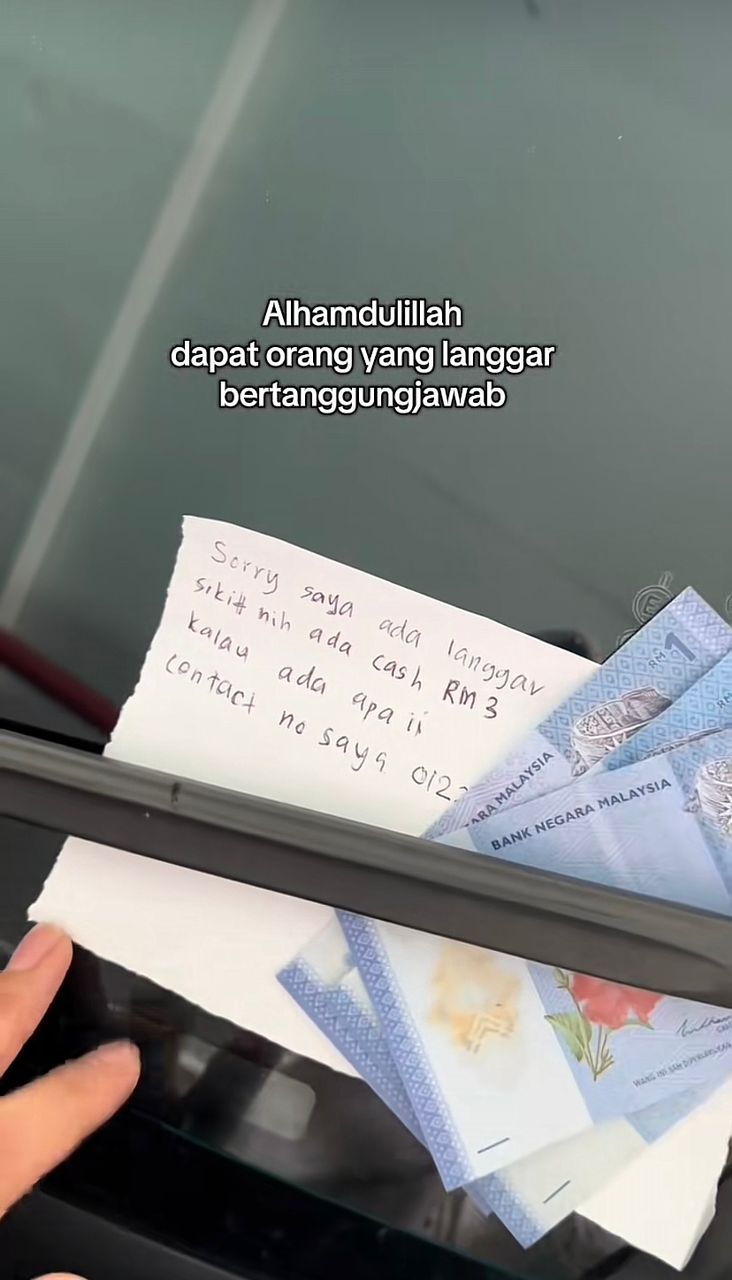 Alhamdulillah
dapat orang yang langgar
bertanggungjawab
Sorry saya ada langgar
sikitt nih ada cash RM 3
kalau ada apa ii
contact no saya 012
RM 1
RM
ARA MALAYSIA
BANK NEGARA MALAYSIA
WANG INI SAH DIPERLAKUKAN